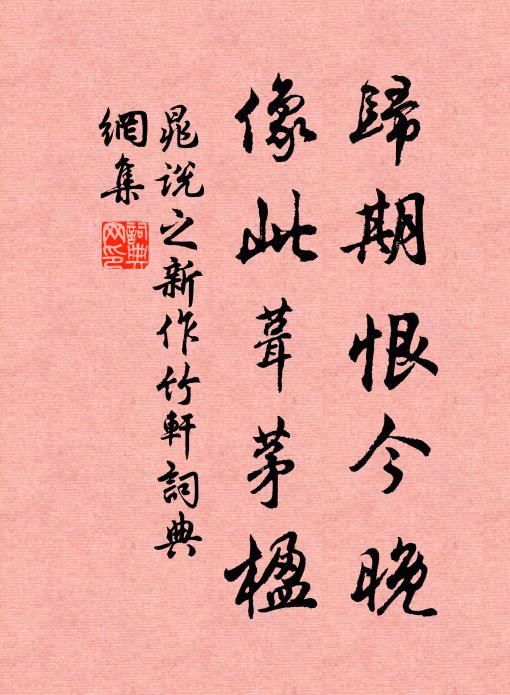 歸期恨今晚
像此葺茅楹
晁說之新作竹軒詞典
網集
詞典
网印